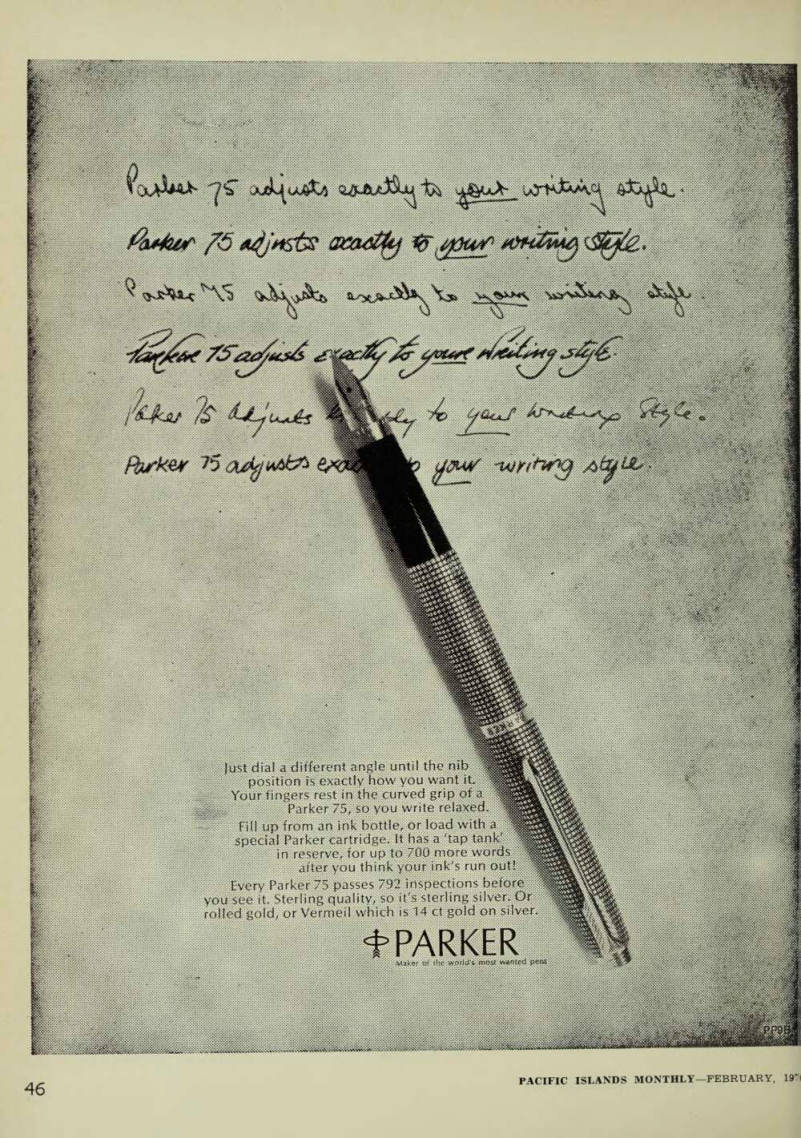 Parker 75 adjusts exactly to your writing style.
Parker 75 adjusts exactly to your writing style.
Parker 75 adjusts exactly to your writing style.
Parker 75 adjusts exactly to your writing style.
Parker 75 adjusts to your writing Style.
Parker 75 adjusts your writing style.
Just dial a different angle until the nib
position is exactly how you want it.
Your fingers rest in the curved grip of a
Parker 75, so you write relaxed.
Fill up from an ink bottle, or load with a
special Parker cartridge. It has a 'tap tank'
in reserve, for up to 700 more words
after you think your ink's run out!
Every Parker 75 passes 792 inspections before
you see it. Sterling quality, so it's sterling silver. Or
rolled gold, or Vermeil which is 14 ct gold on silver.
PARKER
PARKER
Maker of the world's most wanted pens
46
PACIFIC ISLANDS MONTHLY—FEBRUARY,